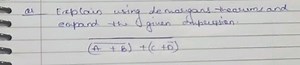 Q1 Explain using demorgans theorums and
expand the given expression.
(A + B) + (C + D)